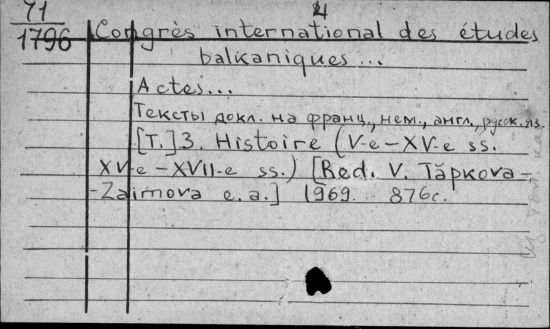 71
4
1796 Congrès international des études
balkaniques ...
Actes...
Тексты докл. на франц., нем., англ., русск. яз.
[T.] 3. Histoire (V-e – XV-e ss.
XV-e – XVII-e ss.) [Red. V. Tăpkova-
-Zaimova e. a.] 1969. 876c.